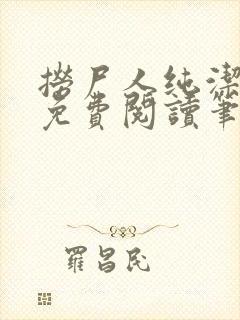 撈尸人純潔
免費閱讀筆
羅昌民